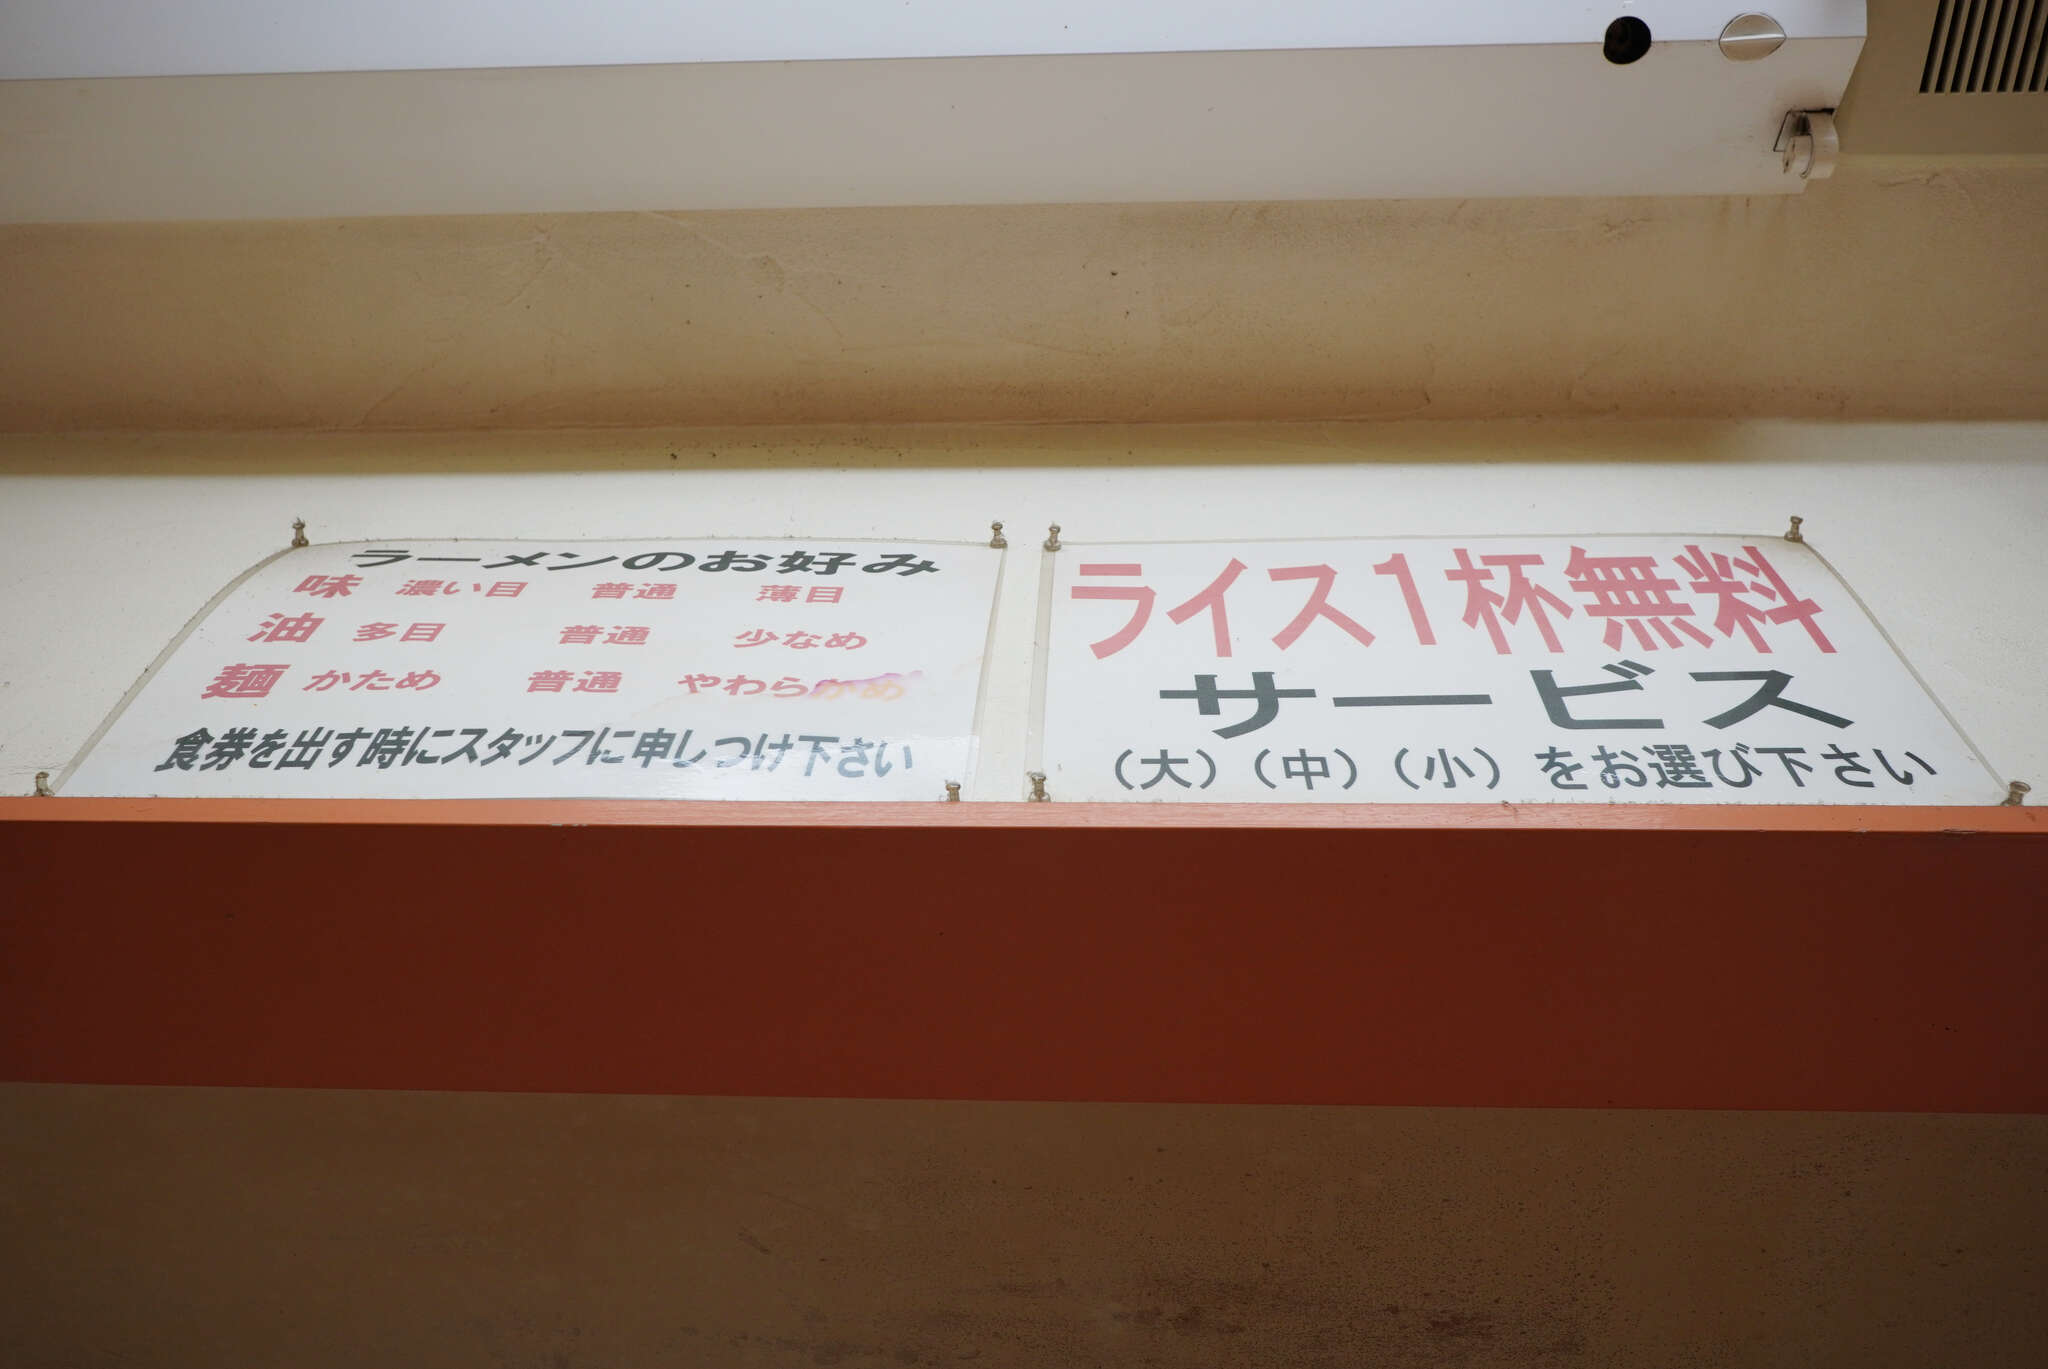 ラーメンのお好み
味 濃い目 普通 薄目
油 多目 普通 少なめ
麺 かため 普通 やわらかめ
食券を出す時にスタッフに申しつけ下さい
ライス1杯無料
サービス
（大）（中）（小）をお選び下さい